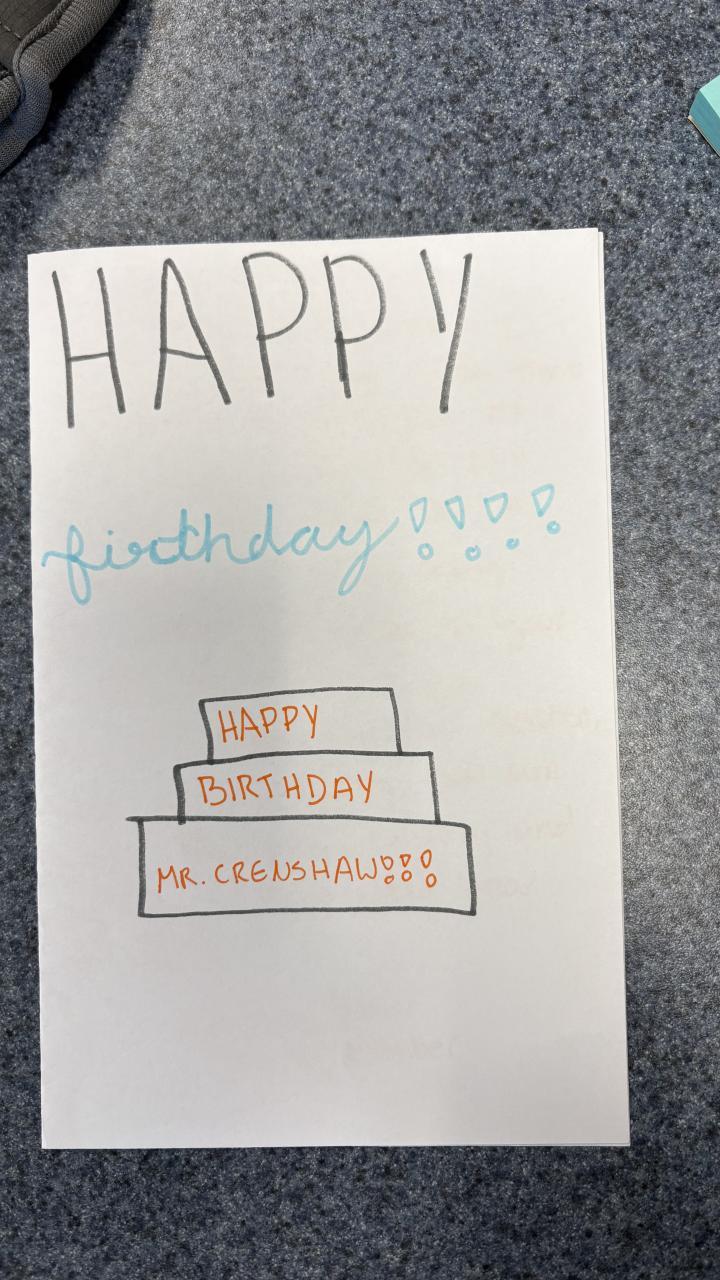 HAPPY
birthday!!!!
HAPPY
BIRTHDAY
MR. CRENSHAW!!!